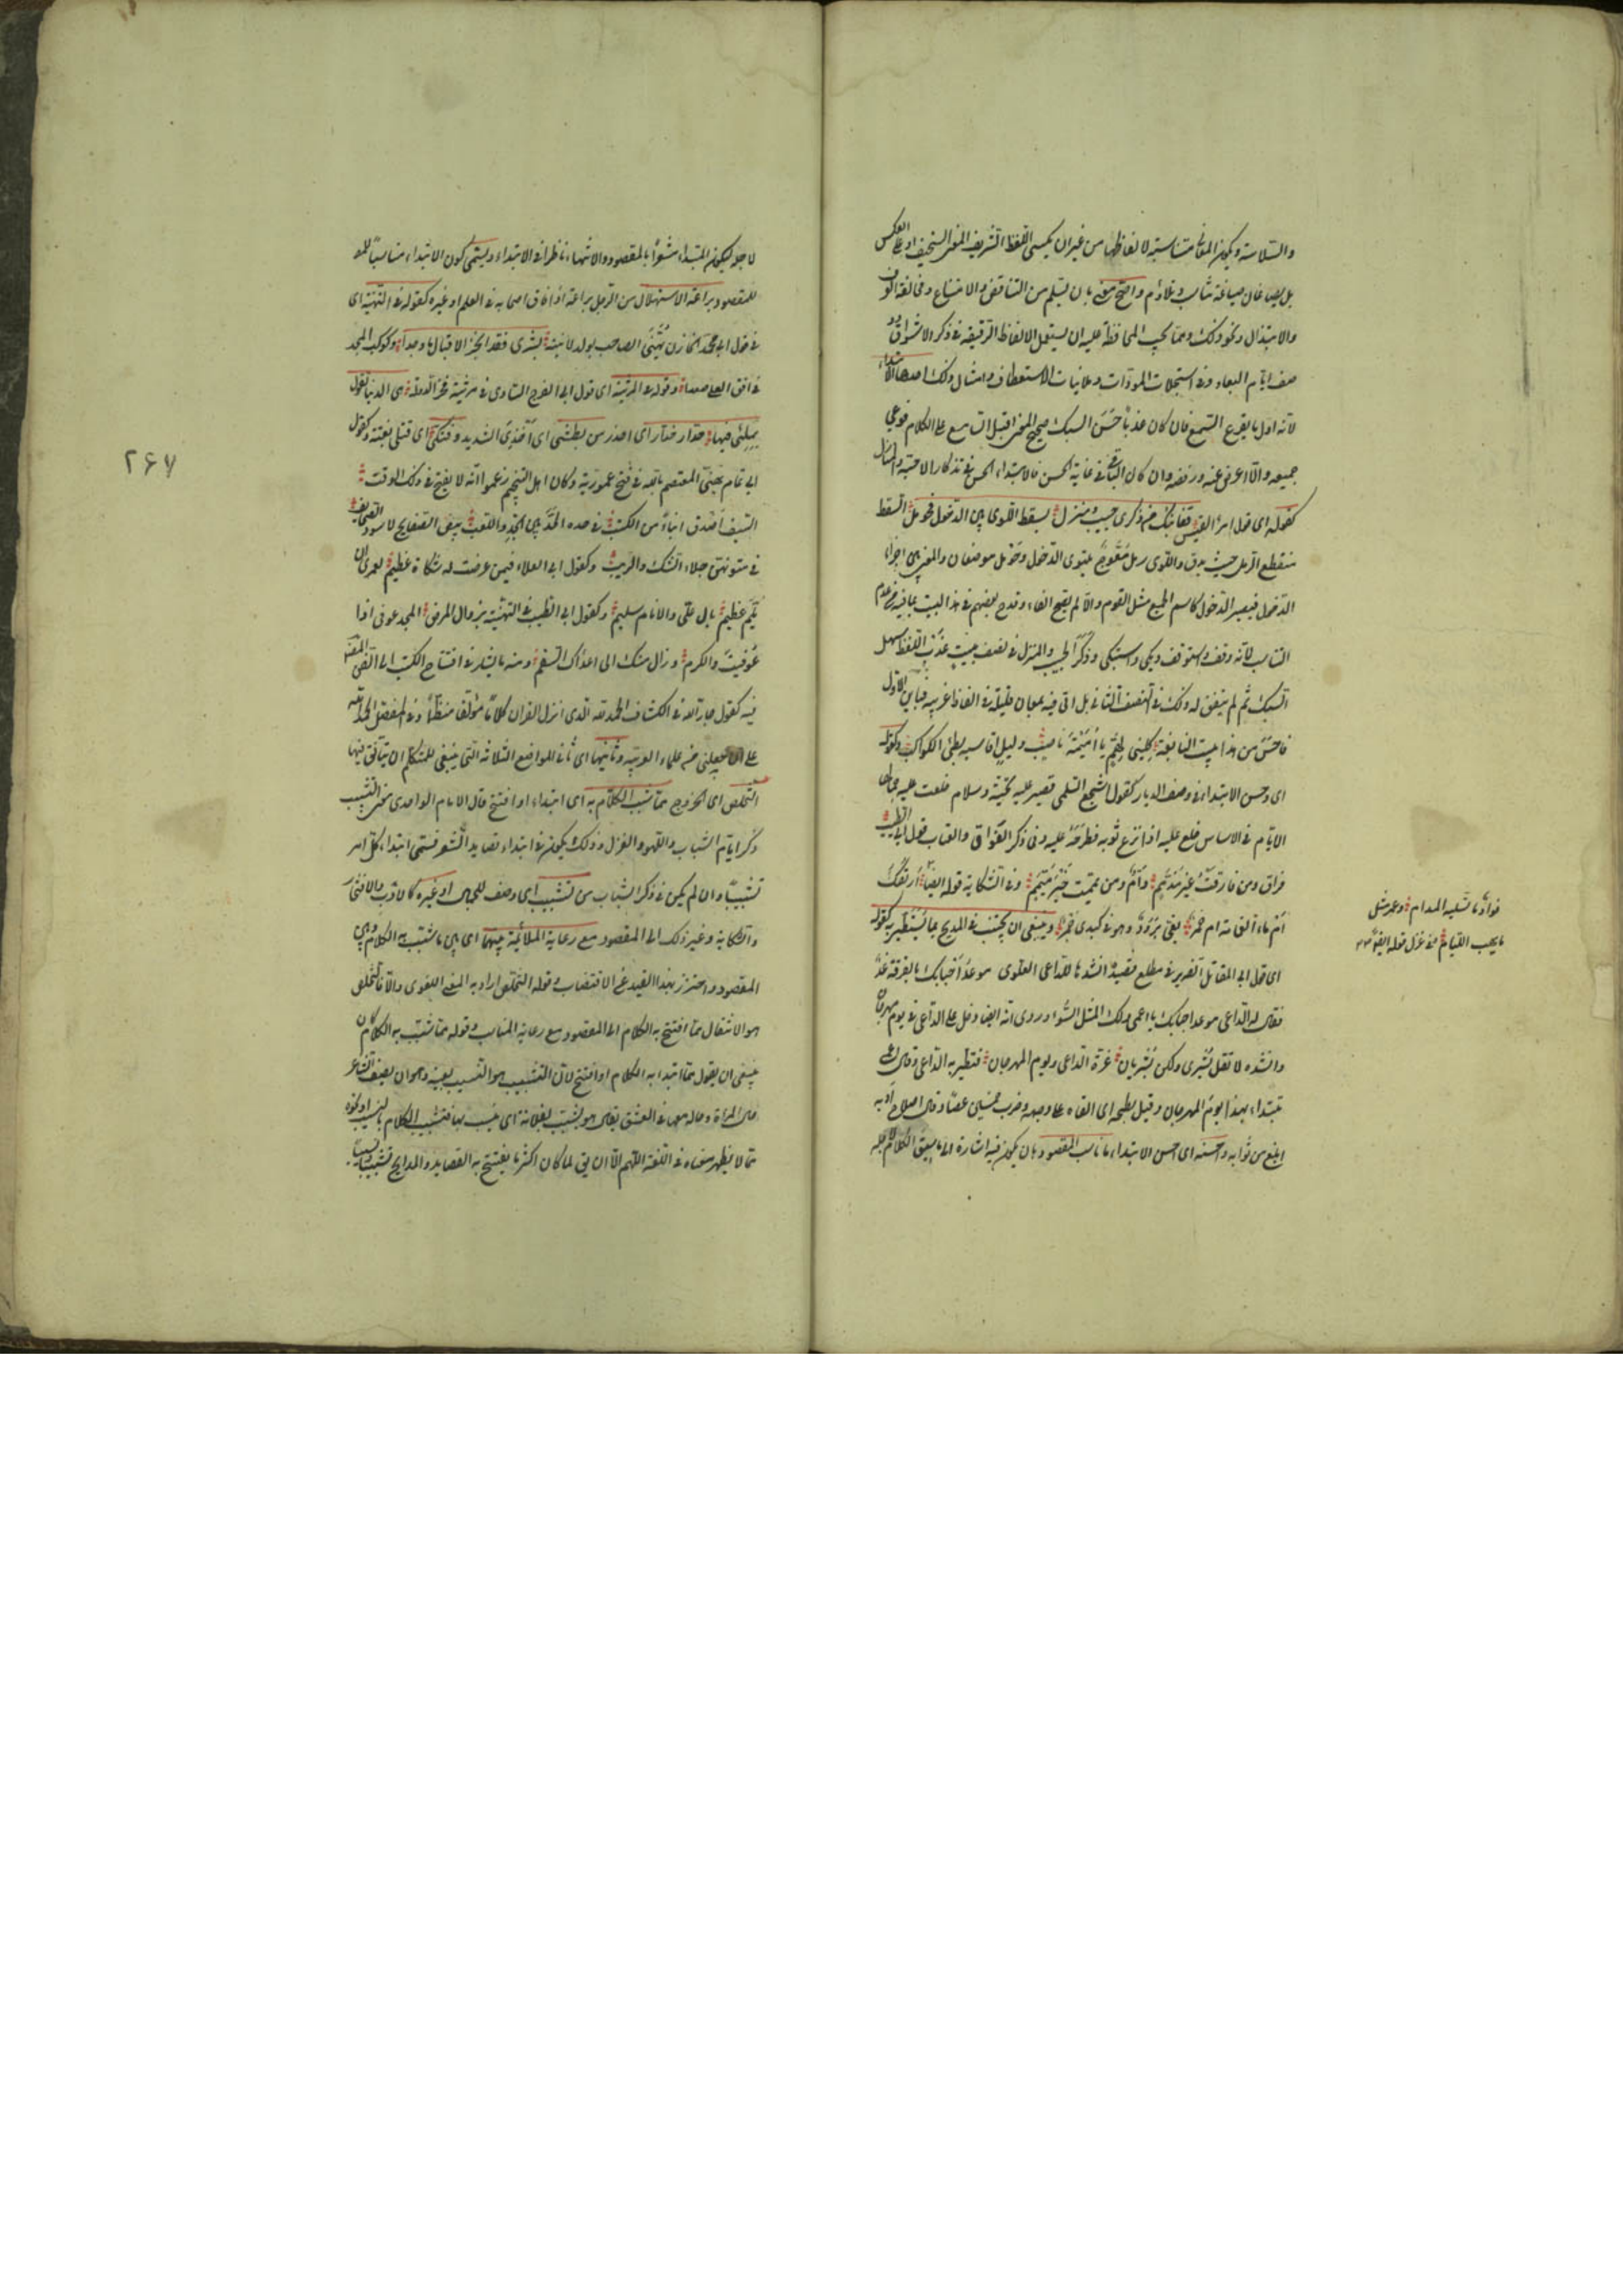 والسلاسة ويكون المعانى متناسبة لالفاظها من غير ان يكتسى اللفظ الشريف المعنى السخيف او على العكس
بل يصاغان صياغة تناسب وتلاؤم واصح معنى بان يسلم من التناقض والامتناع ومخالفة العرف
والابتذال ونحو ذلك ومما يجب المحافظة عليه ان يستعمل الالفاظ الرقيقة فى ذكر الاشواق و
وصف ايام البعاد وفى استجلاب المودات وملاينات الاستعطاف وامثال ذلك احدها الابتداء
لانه اول ما يقرع السمع فان كان عذبا حسن السبك صحيح المعنى اقبل السامع على الكلام فوعى
جميعه والا اعرض عنه ورفضه وان كان الباقى فى غاية الحسن فالابتداء الحسن فى تذكار الاحبة والمنازل
كقوله اى قول امرء القيس قفا نبك من ذكرى حبيب ومنزل بسقط اللوى بين الدخول فحومل السقط
منقطع الرمل حيث يدق واللوى رمل معوج يلتوى الدخول وحومل موضعان والمعنى بين اجزاء
الدخول فيصير الدخول كاسم الجمع مثل القوم والا لم يصح الفاء وقدح بعضهم فى هذا البيت بما فيه من عدم
التناسب لانه وقف واستوقف وبكى واستبكى وذكر الحبيب والمنزل فى نصف بيت عذب اللفظ سهل
السبك ثم لم يتفق له ذلك فى النصف الثانى بل اتى فيه بمعان قليلة فى الفاظ غريبة فباين الاول
فاحسن من هذا بيت النابغة كلينى لهم يا اميمة ناصب وليل اقاسيه بطئ الكواكب وكقوله
اى وحسن الابتداء فى وصف الديار كقول اشجع السلمى قصر عليه تحية وسلام خلعت عليه جمالها
الايام فى الاساس خلع عليه اذا نزع ثوبه فطرحه عليه وفى ذكر الفراق والعتاب قول ابى الطيب
فراق ومن فارقت غير مذمم وام ومن يممت خير ميمم وفى الشكاية قوله ايضا أريقك
أم ماء الغمامة ام خمر بفى برود وهو فى كبدى جمر وينبغى ان يجتنب فى المديح مما يتطير به كقوله
اى قول ابى المقاتل الضرير فى مطلع قصيدة انشدها للداعى العلوى موعد احبابك بالفرقة غد
فقال له الداعى موعد احبابك يا اعمى ولك المثل السوء وروى انه ايضا دخل على الداعى فى يوم مهرجان
وانشده لا تقل بشرى ولكن بشريان غرة الداعى ويوم المهرجان فتطير به الداعى وقال اعمى
يبتداء بهذا يوم المهرجان وقيل بطحه اى القاه على وجهه وضرب خمسين عصا وقال اصلاح ادبه
ابلغ من ثوابه واحسنه اى احسن الابتداء ما ناسب المقصود بان يكون فيه اشارة الى ما سيق الكلام لاجله
فواد ما تسليه المدام وعمر مثل
ما يهب اللئام قوله ايضا
لاجله ليكون المبتداء مشعرا بالمقصود والانتهاء ناظرا فى الابتداء ويسمى كون الابتداء مناسبا
للمقصود براعة الاستهلال من برع الرجل براعة اذا فاق اصحابه فى العلم او غيره كقوله فى التهنئة اى
فى قول ابى محمد الخازن يهنئ الصاحب بولد لابنته بشرى فقد انجز الاقبال ما وعدا وكوكب المجد
فى افق العلى صعدا وقوله فى المرثية اى قول ابى الفرج الساوى فى مرثية فخر الدولة هى الدنيا تقول
بملئ فيها حذار حذار اى احذر من بطشى اى اخذى الشديد وفتكى اى قتلى بغتة وكقول
ابى تمام يهنئ المعتصم بالله فى فتح عمورية وكان اهل التنجيم زعموا انه لا يفتح فى ذلك الوقت
السيف اصدق انباء من الكتب فى حده الحد بين الجد واللعب بيض الصفايح لا سود الصحايف
فى متونهن جلاء الشك والريب وكقول ابى العلاء فيمن عرضت له شكاة عظيم لعمرى ان
يلم عظيم بآل على والانام سليم وكقول ابى الطيب فى التهنئة بزوال المرض المجد عوفى اذا
عوفيت والكرم وزال منك الى اعدائك السقم ومنه ما يشار فى افتتاح الكتب الى الفن المصنف
فيه كقول جار الله فى الكشاف الحمد لله الذى انزل القران كلاما مؤلفا منظما وفى المفصل الحمد لله
على ان جعلنى من علماء العربية وثانيها اى ثانى المواضع الثلاثة التى ينبغى للمتكلم ان يتانق فيها
التخلص اى الخروج مما شبب الكلام به اى ابتداء او افتتح قال الامام الواحدى معنى التشبيب
ذكر ايام الشباب واللهو والغزل وذلك يكون فى ابتداء قصايد الشعر فسمى ابتداء كل امر
تشبيبا وان لم يكن فى ذكر الشباب من تشبيب اى وصف للجمال او غيره كالادب والافتخار
والشكاية وغير ذلك الى المقصود مع رعاية الملائمة بينهما اى بين ما شبب به الكلام وبين
المقصود واحترز بهذا القيد عن الاقتضاب وقوله التخلص اراد به المعنى اللغوى والا فالتخلص
هو الانتقال مما افتتح به الكلام الى المقصود مع رعاية المناسب وقوله مما شبب به الكلام كان
ينبغى ان يقول مما ابتدا به الكلام او افتتح لان التشبيب هو النسيب بعينه وهو ان يصف الشاعر
جمال المراة وحاله معها فى العشق يقال هو يشبب بفلانة اى ينسب بها فتشبيب الكلام بالنسيب ونحوه
مما لا يظهر معناه فى اللغة اللهم الا ان يقال لما كان اكثر ما يفتتح به القصايد والمدايح تشبيبا ونسيبا
٢٦٧